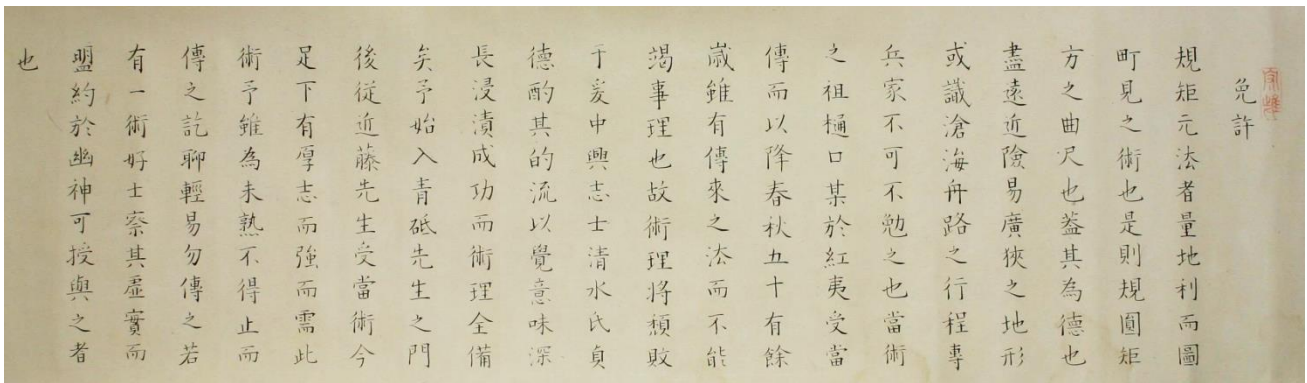 免許
規矩元法者量地利而圖
町見之術也是則規圓矩
方之曲尺也蓋其為德也
盡遠近險易廣狹之地形
或識滄海舟路之行程專
兵家不可不勉之也當術
之祖樋口某於紅夷受當
傳而以降春秋五十有餘
歳雖有傳來之法而不能
竭事理也故術理將頽敗
于爰中興志士清水氏貞
德酌其的流以覺意味深
長浸漬成功而術理全備
矣予始入青砥先生之門
後從近藤先生受當術今
足下有厚志而強而需此
術予雖為未熟不得止而
傳之訖聊輕易勿傳之若
有一術好士察其虛實而
盟約於幽神可授與之者
也